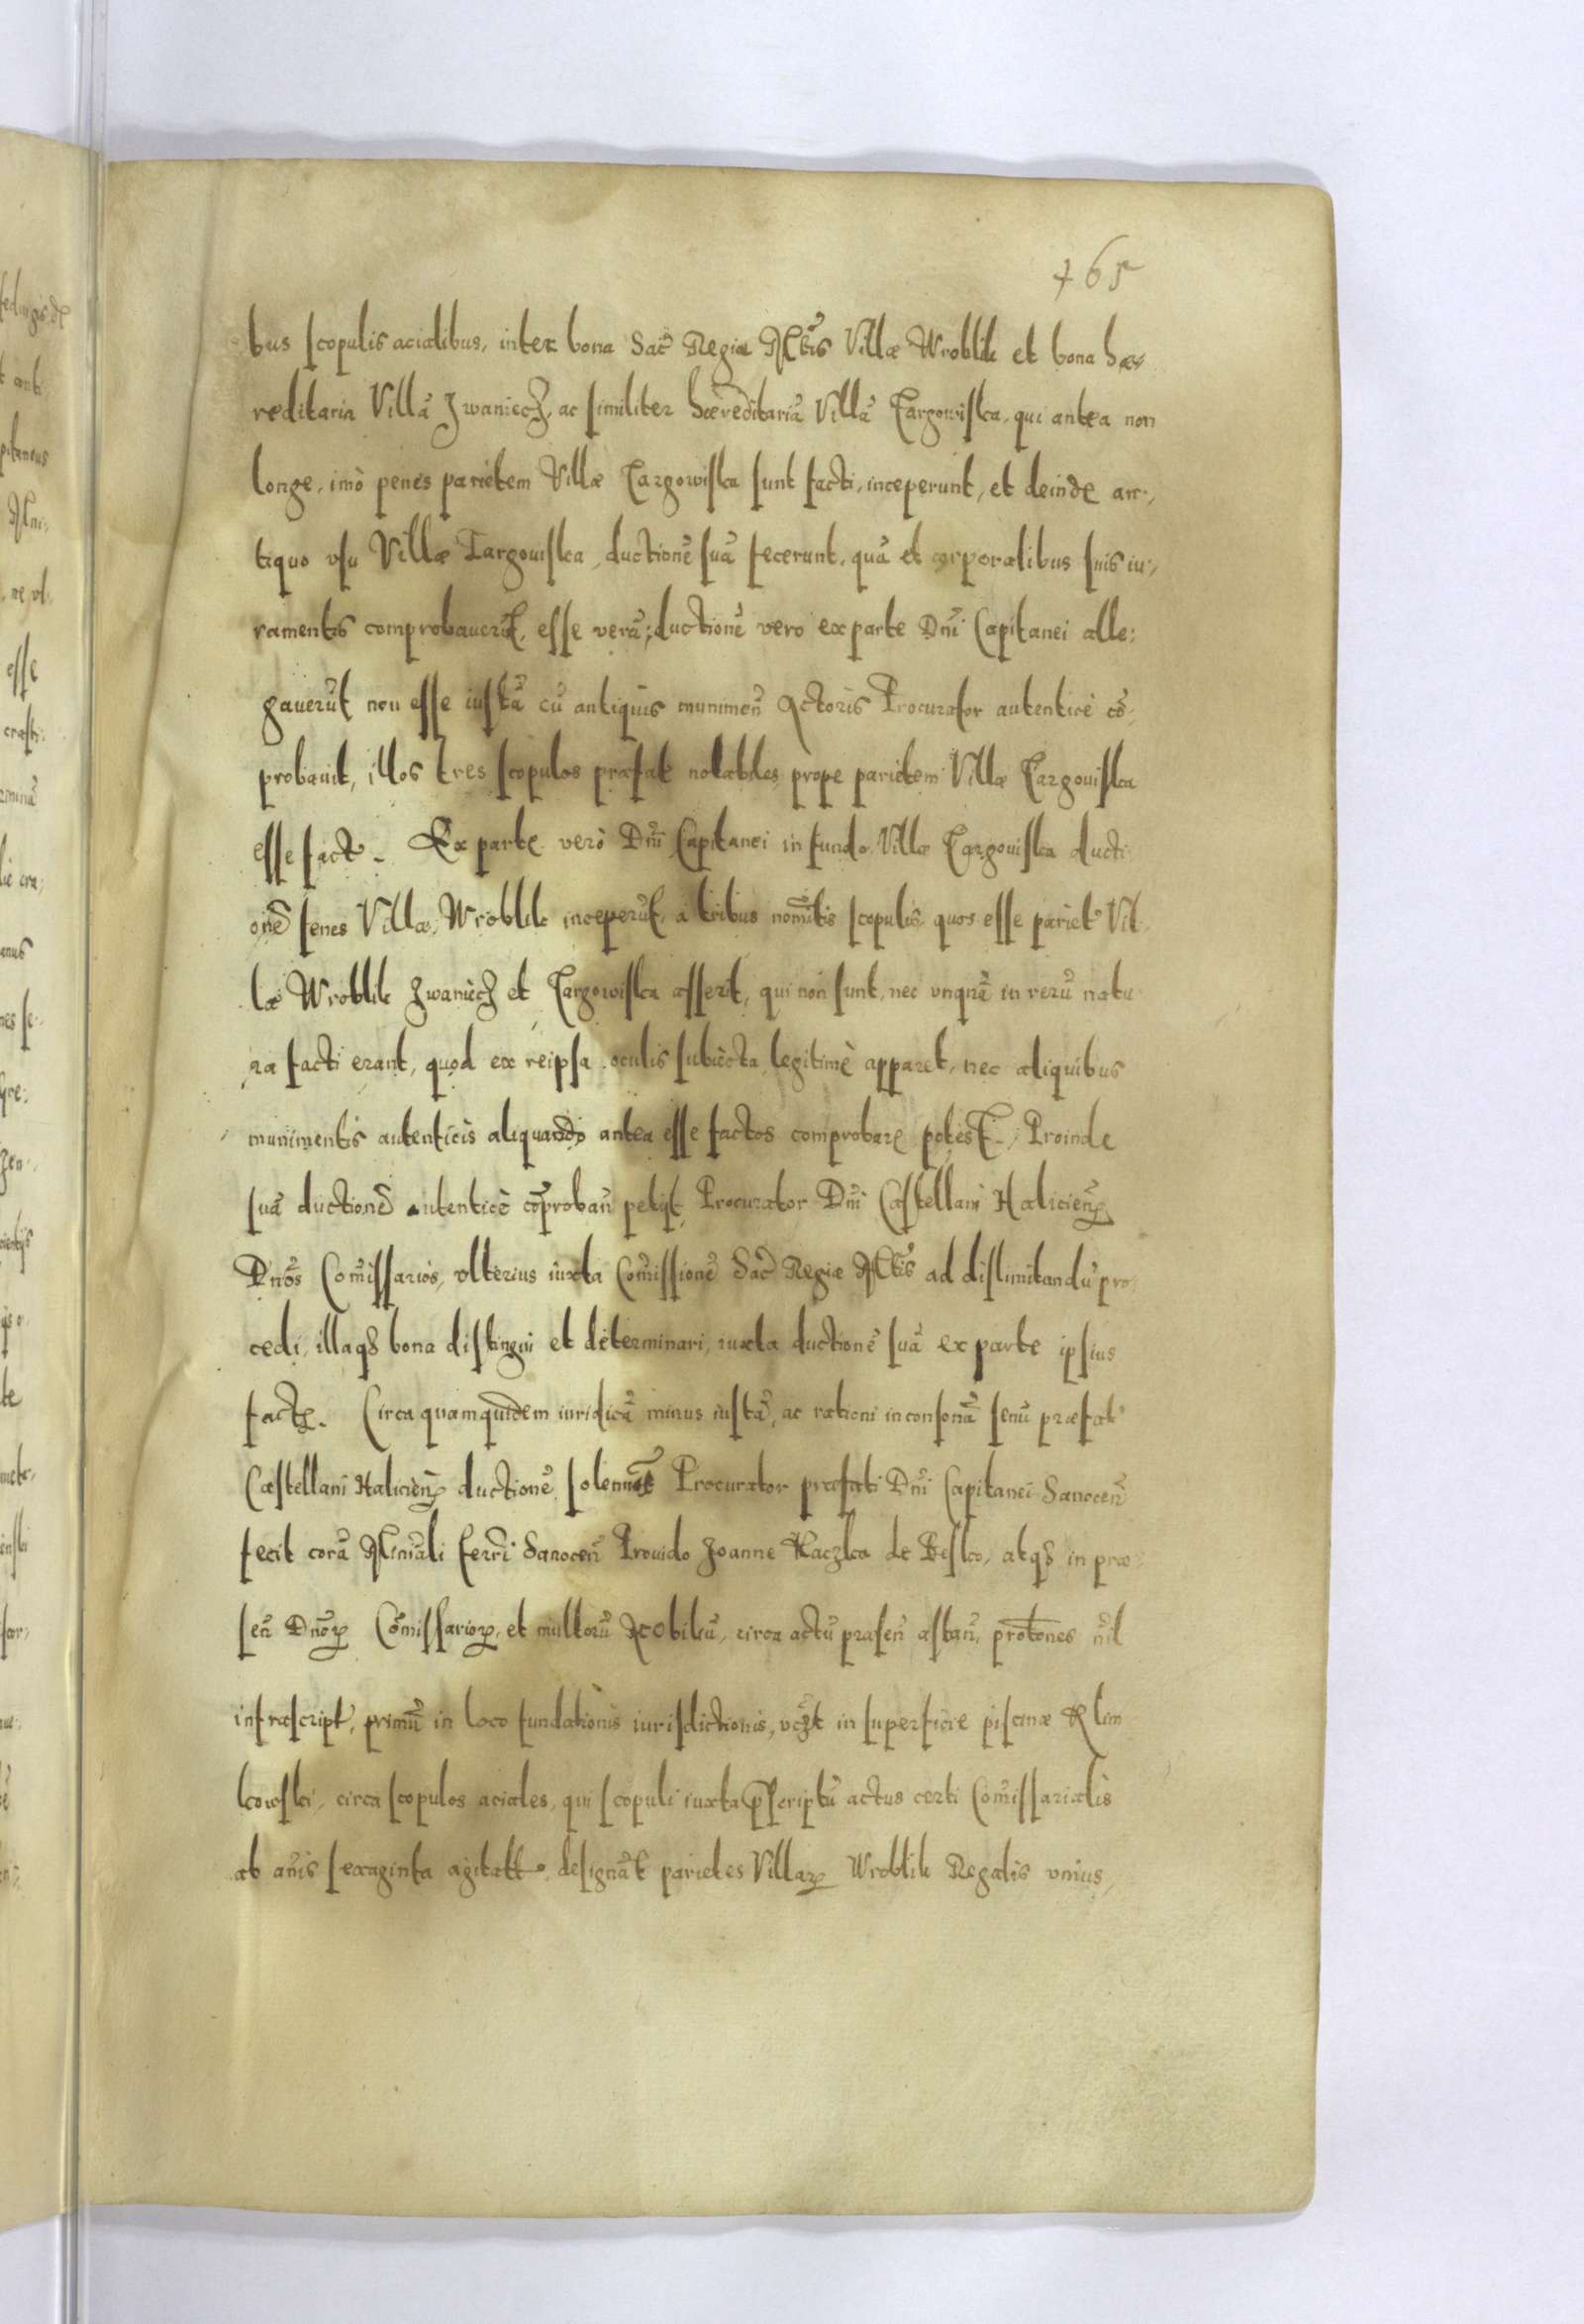 465
bus scopulis acialibus, inter bona Sac̃ Regiæ Mt̃tis Villæ Wroblik et bona hæ,
reditaria Villã Jwaniecz, ac similiter hæreditariã Villã Targowiska, qui antea non
longe, imò penes parietem Villæ Targowiska sunt facti, inceperunt, et deinde an,
tiquo vsu Villæ Targouiska, ductionẽ suã fecerunt, quã et corporalibus suis iu,
ramentis comprobauerũt, esse verã; ductionẽ vero ex parte Dnĩ Capitanei alle;
gauerũt non esse iustã cũ antiquis munimen̄ Actoris Procurator autenticè cõ,
probauit, illos tres scopulos præfat notabiles, prope parietem Villæ Targouiska
esse fact. Ex parte verò Dnĩ Capitanei in fundo Villæ Targouiska ducti
onẽ senes Villæ Wroblik inceperũt, a tribus nomĩtis scopulis, quos esse pariet Vil
læ Wroblik Jwaniecz et Targowiska asserũt, qui non sunt, nec vnquã in rerũ natu
ra facti erant, quod ex reipsa oculis subiecta, legitimè apparet, nec aliquibus
munimentis autenticis aliquando antea esse factos comprobare potest. Proinde
suã ductionẽ autenticè cõprobaũ petijt, Procurator Dnĩ Castellani Halicieñ
Dnõs Comĩssarios, vlterius iuxta Comĩssionẽ Sac̃ Regiæ Mt̃tis ad dislimitandũ pro
cedi, illaq; bona distingui et determinari, iuxta ductionẽ suã ex parte ipsius
factã. Circa quamquidem iuridicã minus iustã, ac rationi inconsonã senũ præfat
Castellani Halicieñ ductionẽ, solennit Procurator præfati Dnĩ Capitanei Sanoceñ
fecit corã Mĩnrali Terrĩ Sanoceñ Prouido Joanne Kaczka de Besko, atq; in præ
señ Dnõrũ Comĩssariorũ, et multorũ Nobiliũ, circa actũ præseñ astañ, protõnes
infrascript, primũ in loco fundationis iurisdictionis, vczt in superficie piscinæ Klim
kowski, circa scopulos aciales, qui scopuli iuxta p̃scriptũ actus certi Comĩssarialis
ab anĩs sexaginta agitatt, designãt parietes Villarũ Wroblik Regalis vnius,